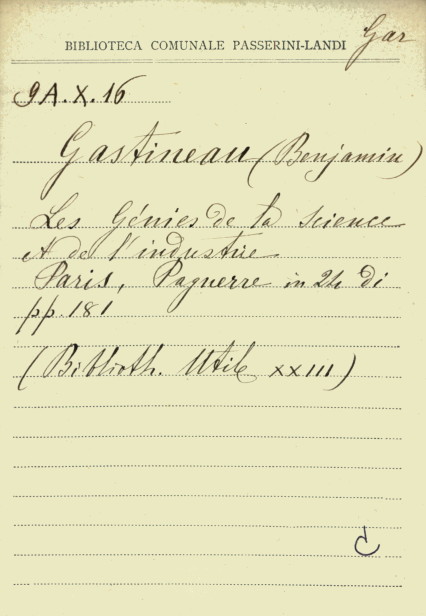 Gar
BIBLIOTECA COMUNALE PASSERINI-LANDI
9A.X.16
Gastineau (Benjamin)
Les Génies de la Science
et de l'industrie
Paris, Pagnerre in 24 di
pp. 181
(Biblioth. Utile XXIII)
C